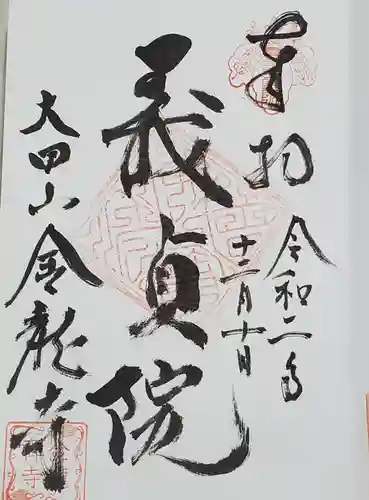 奉拝
令和二年
十二月十日
義貞院
大田山金龍寺